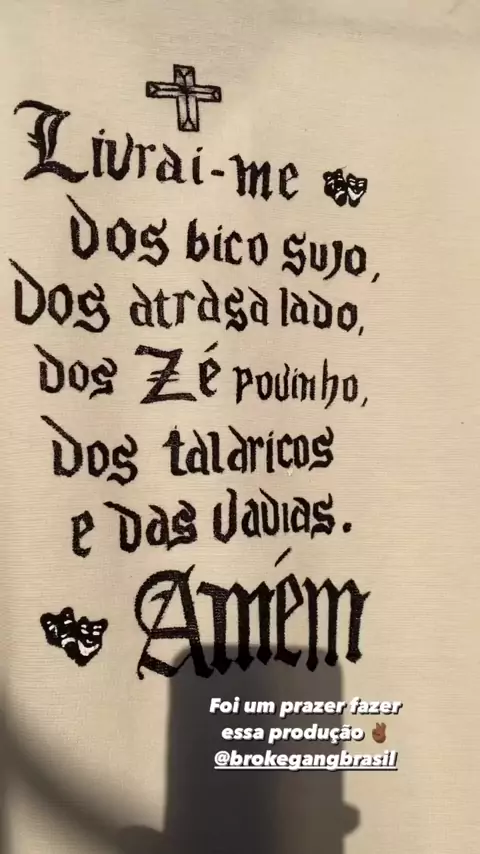 Livrai-me
dos bico sujo,
Dos atrasa lado,
dos Zé povinho,
dos talaricos
e das vadias.
Amém
Foi um prazer fazer
essa produção ✌🏾
@brokegangbrasil